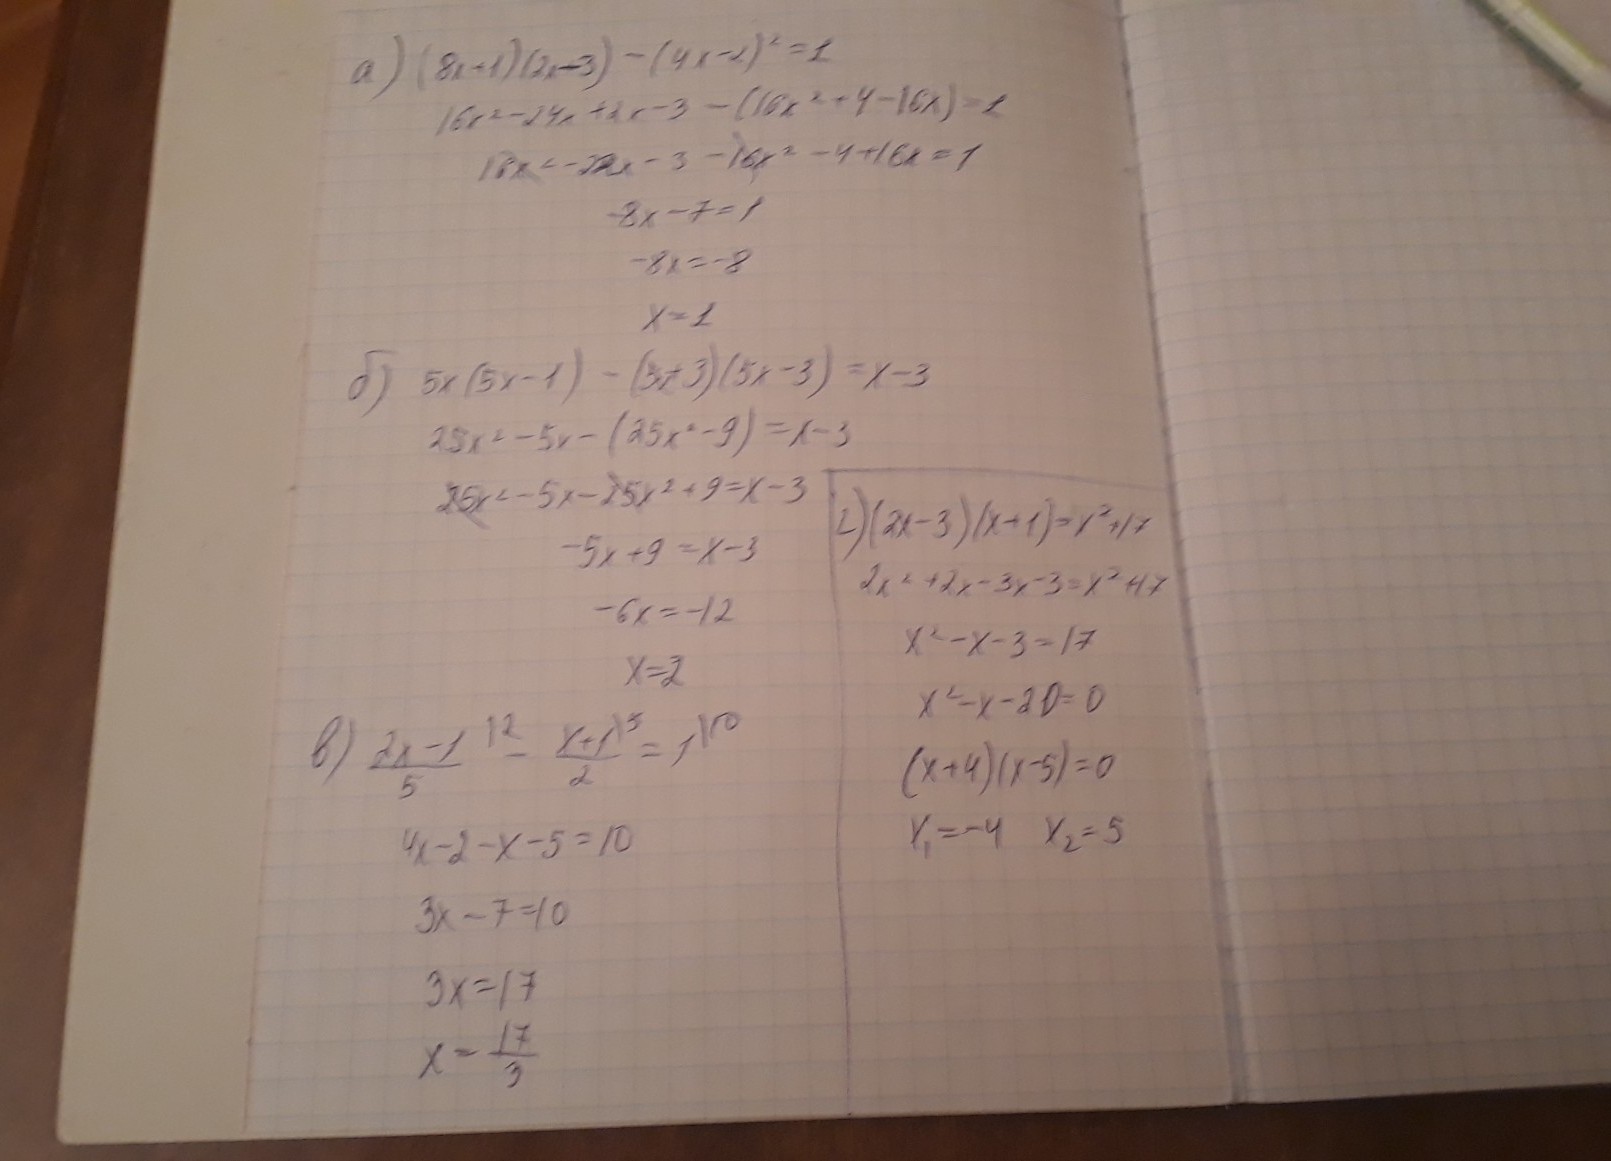 а) (8x+1)(2x-3) - (4x-2)² = 1
16x² - 24x + 2x - 3 - (16x² + 4 - 16x) = 1
16x² - 22x - 3 - 16x² - 4 + 16x = 1
-8x - 7 = 1
-8x = -8
x = 1
б) 5x(5x-1) - (5x+3)(5x-3) = x-3
25x² - 5x - (25x² - 9) = x-3
25x² - 5x - 25x² + 9 = x-3
-5x + 9 = x-3
-6x = -12
x = 2
в) (2x-1)/5 |2 - (x+1)/2 |5 = 1 |10
4x - 2 - x - 5 = 10
3x - 7 = 10
3x = 17
x = 17/3
г) (2x-3)(x+1) = x² + 17
2x² + 2x - 3x - 3 = x² + 17
x² - x - 3 = 17
x² - x - 20 = 0
(x+4)(x-5) = 0
x₁ = -4 x₂ = 5